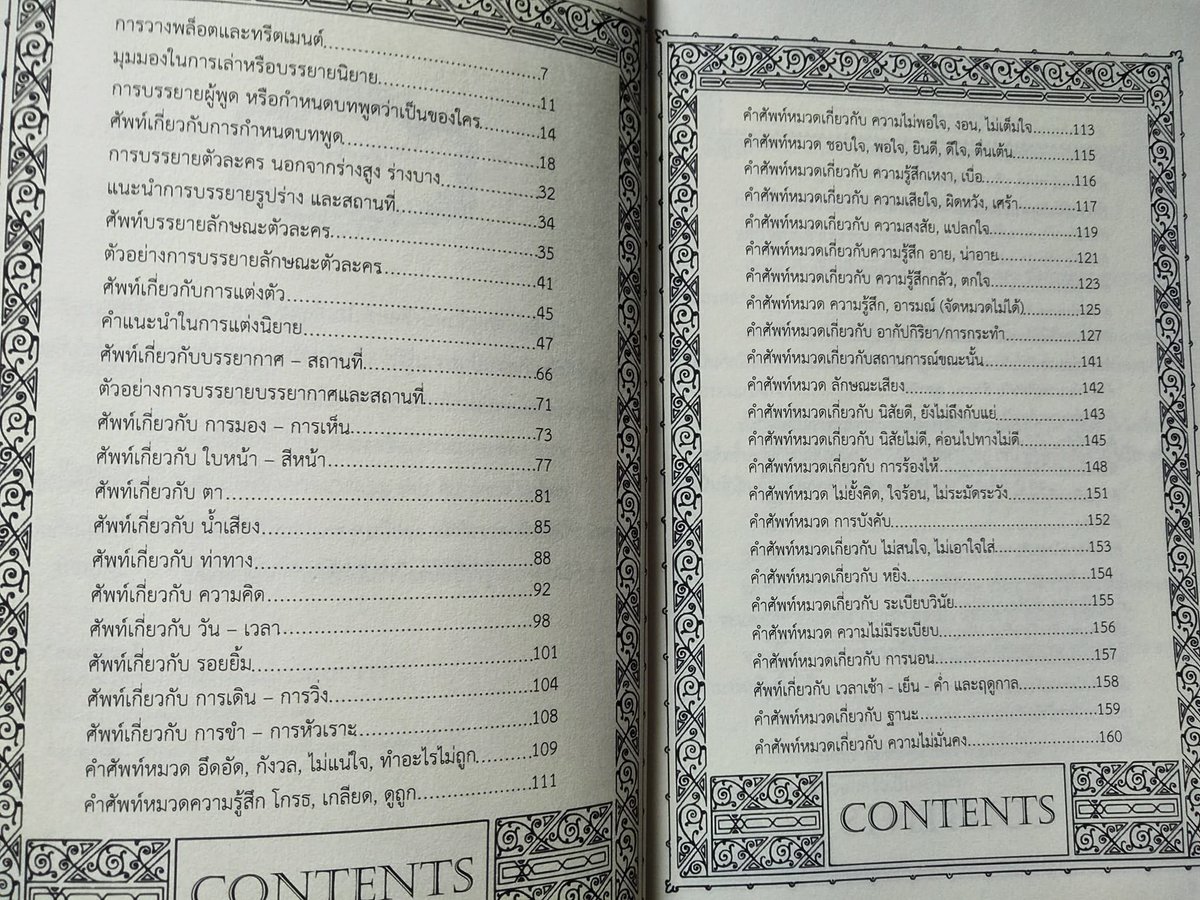 การวางพล็อตและทรีตเมนต์ 7
มุมมองในการเล่าหรือบรรยายนิยาย 11
การบรรยายผู้พูด หรือกำหนดบทพูดว่าเป็นของใคร 14
ศัพท์เกี่ยวกับการกำหนดบทพูด 18
การบรรยายตัวละคร นอกจากร่างสูง ร่างบาง 32
แนะนำการบรรยายรูปร่าง และสถานที่ 34
ศัพท์บรรยายลักษณะตัวละคร 35
ตัวอย่างการบรรยายลักษณะตัวละคร 41
ศัพท์เกี่ยวกับการแต่งตัว 45
คำแนะนำในการแต่งนิยาย 47
ศัพท์เกี่ยวกับบรรยากาศ – สถานที่ 66
ตัวอย่างการบรรยายบรรยากาศและสถานที่ 71
ศัพท์เกี่ยวกับ การมอง – การเห็น 73
ศัพท์เกี่ยวกับ ใบหน้า – สีหน้า 77
ศัพท์เกี่ยวกับ ตา 81
ศัพท์เกี่ยวกับ น้ำเสียง 85
ศัพท์เกี่ยวกับ ท่าทาง 88
ศัพท์เกี่ยวกับ ความคิด 92
ศัพท์เกี่ยวกับ วัน – เวลา 98
ศัพท์เกี่ยวกับ รอยยิ้ม 101
ศัพท์เกี่ยวกับ การเดิน – การวิ่ง 104
ศัพท์เกี่ยวกับ การขำ – การหัวเราะ 108
คำศัพท์หมวด อึดอัด, กังวล, ไม่แน่ใจ, ทำอะไรไม่ถูก 109
คำศัพท์หมวดความรู้สึก โกรธ, เกลียด, ดูถูก 111
CONTENTS
คำศัพท์หมวดเกี่ยวกับ ความไม่พอใจ, งอน, ไม่เต็มใจ 113
คำศัพท์หมวด ชอบใจ, พอใจ, ยินดี, ดีใจ, ตื่นเต้น 115
คำศัพท์หมวดเกี่ยวกับ ความรู้สึกเหงา, เบื่อ 116
คำศัพท์หมวดเกี่ยวกับ ความเสียใจ, ผิดหวัง, เศร้า 117
คำศัพท์หมวดเกี่ยวกับ ความสงสัย, แปลกใจ 119
คำศัพท์หมวดเกี่ยวกับความรู้สึก อาย, น่าอาย 121
คำศัพท์หมวดเกี่ยวกับ ความรู้สึกกลัว, ตกใจ 123
คำศัพท์หมวด ความรู้สึก, อารมณ์ (จัดหมวดไม่ได้) 125
คำศัพท์หมวดเกี่ยวกับ อากัปกิริยา/การกระทำ 127
คำศัพท์หมวดเกี่ยวกับสถานการณ์ขณะนั้น 141
คำศัพท์หมวด ลักษณะเสียง 142
คำศัพท์หมวดเกี่ยวกับ นิสัยดี, ยังไม่ถึงกับแย่ 143
คำศัพท์หมวดเกี่ยวกับ นิสัยไม่ดี, ค่อนไปทางไม่ดี 145
คำศัพท์หมวดเกี่ยวกับ การร้องไห้ 148
คำศัพท์หมวด ไม่ยั้งคิด, ใจร้อน, ไม่ระมัดระวัง 151
คำศัพท์หมวด การบังคับ 152
คำศัพท์หมวดเกี่ยวกับ ไม่สนใจ, ไม่เอาใจใส่ 153
คำศัพท์หมวดเกี่ยวกับ หยิ่ง 154
คำศัพท์หมวดเกี่ยวกับ ระเบียบวินัย 155
คำศัพท์หมวด ความไม่มีระเบียบ 156
คำศัพท์หมวดเกี่ยวกับ การนอน 157
ศัพท์เกี่ยวกับ เวลาเช้า - เย็น - ค่ำ และฤดูกาล 158
คำศัพท์หมวดเกี่ยวกับ ฐานะ 159
คำศัพท์หมวดเกี่ยวกับ ความไม่มั่นคง 160
CONTENTS